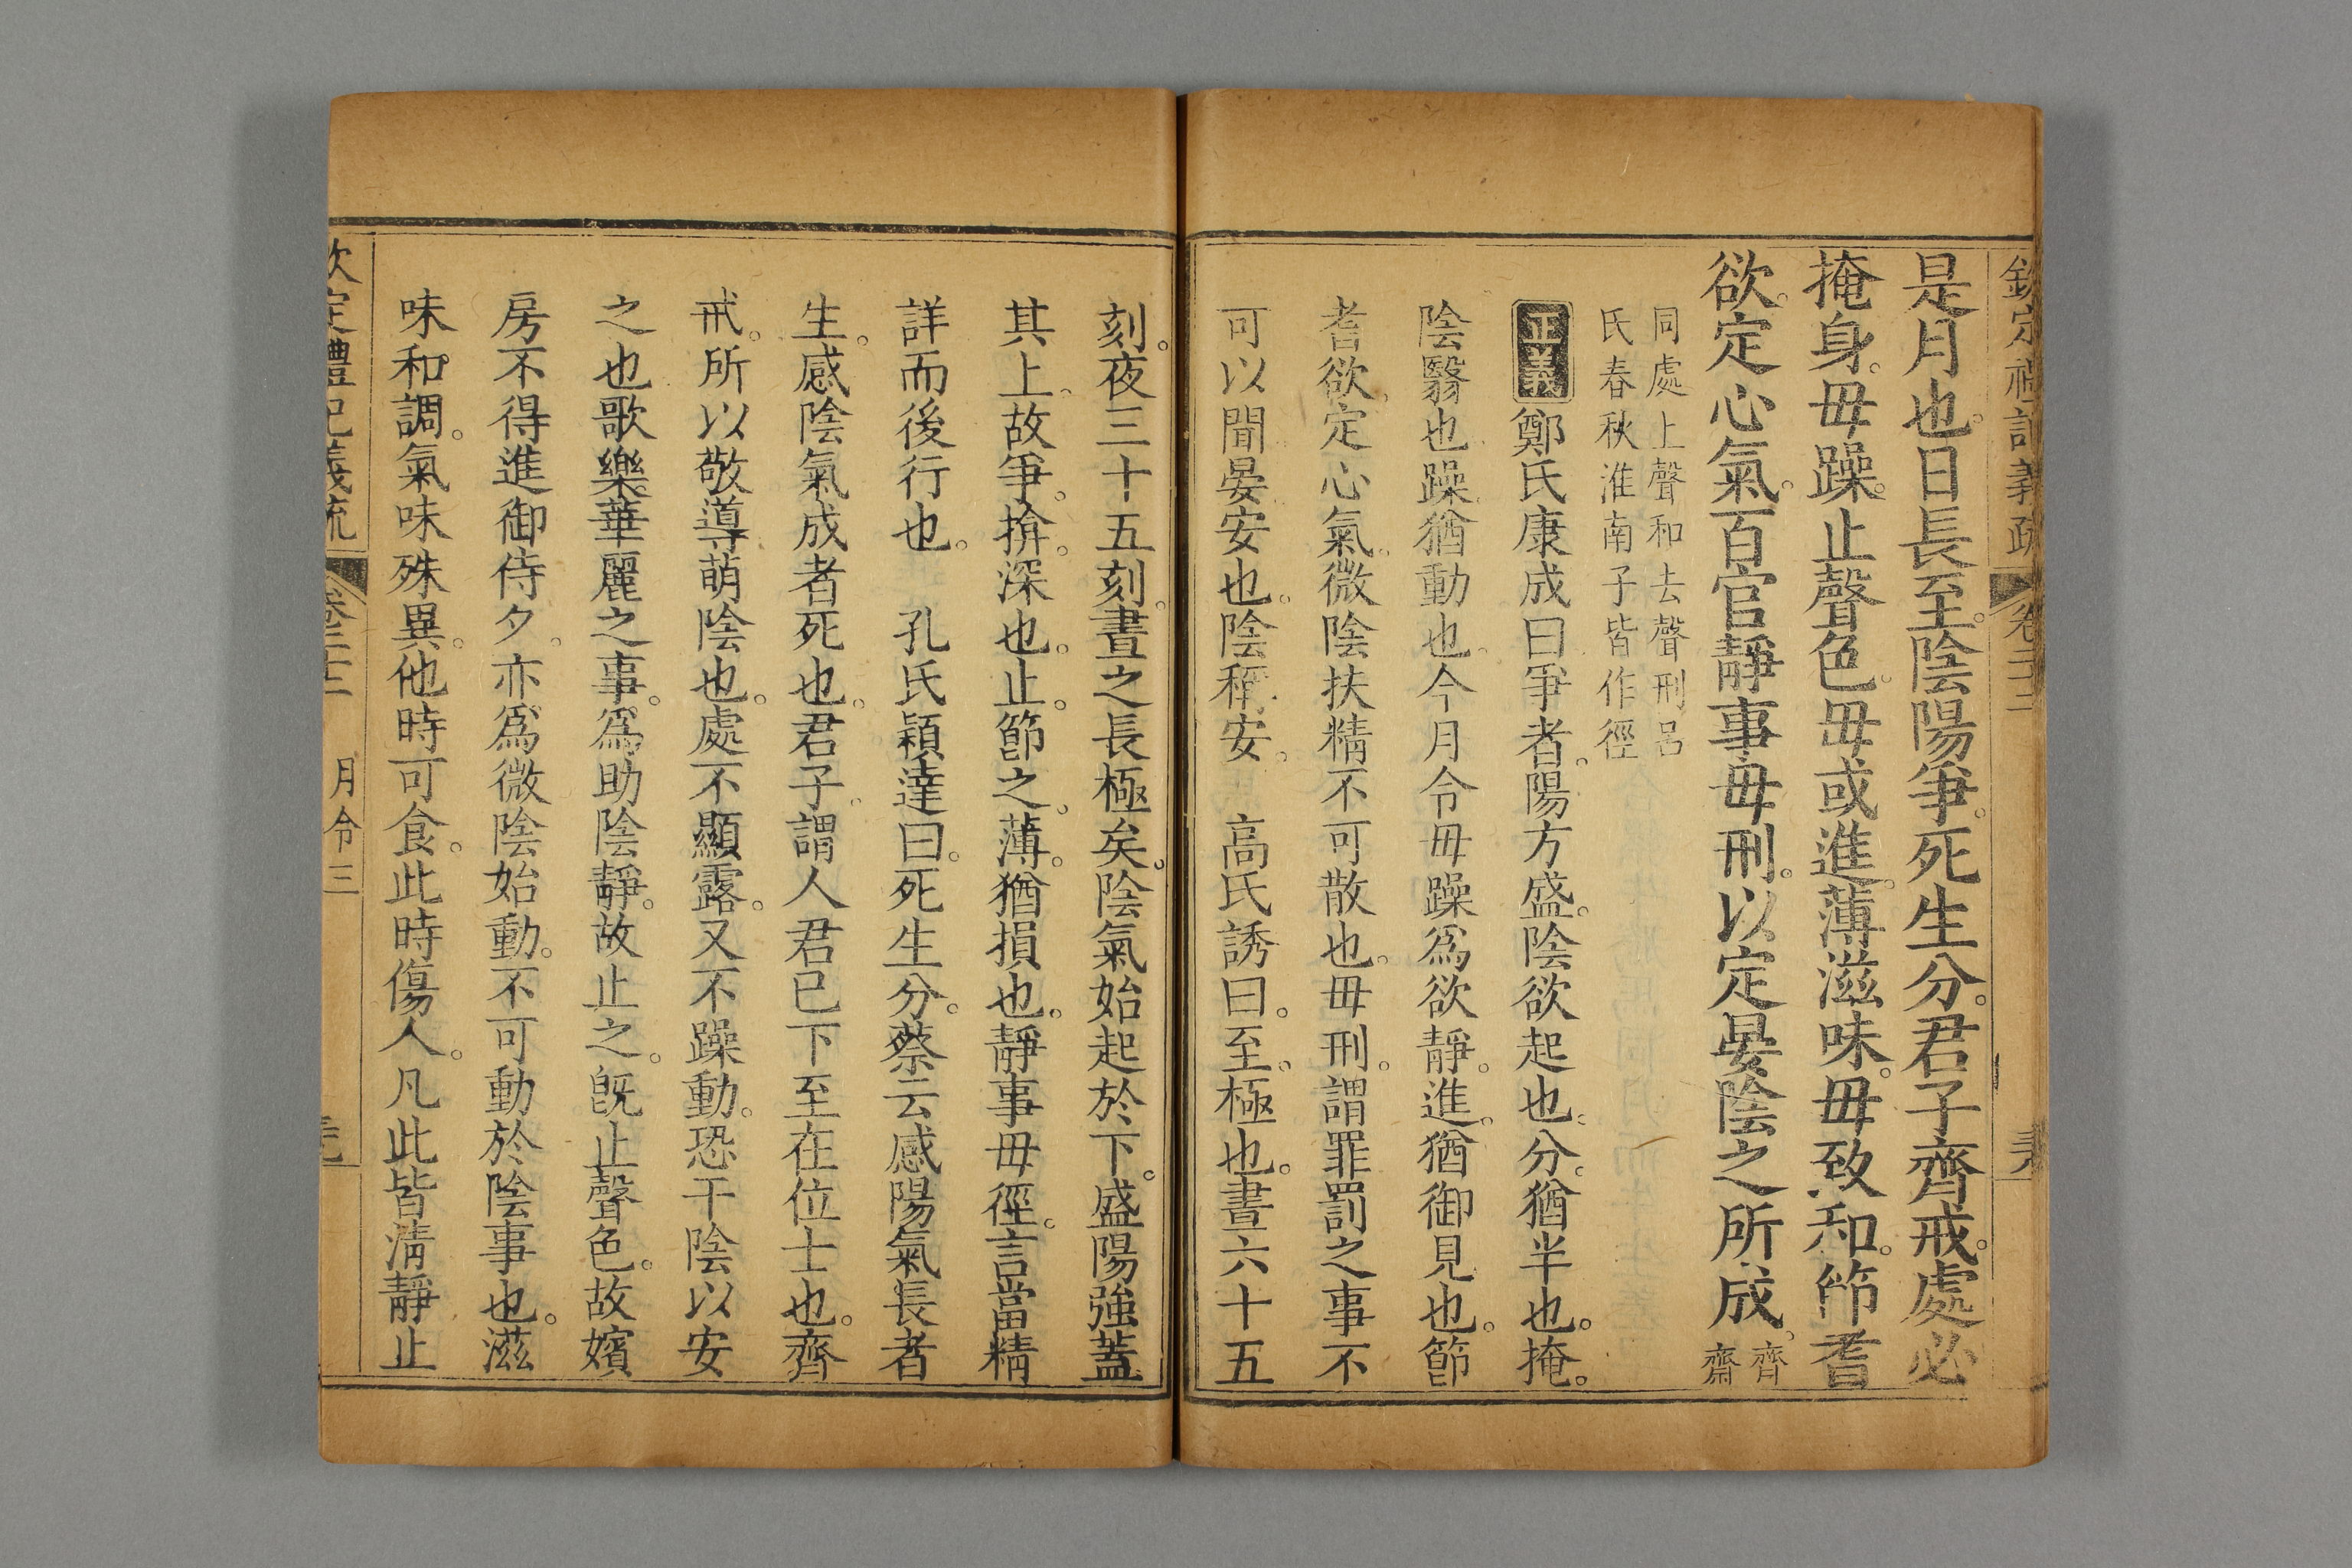 欽定禮記義疏 卷二十二
是月也日長至。陰陽爭。死生分。君子齊戒。處必
掩身。毋躁。止聲色。毋或進。薄滋味。毋致和。節耆
欲。定心氣。百官靜事毋刑。以定晏陰之所成。齊齋
同處上聲和去聲刑呂
氏春秋淮南子皆作徑
正義 鄭氏康成曰爭者。陽方盛。陰欲起也。分。猶半也。掩。
陰翳也。躁。猶動也。今月令毋躁爲欲靜。進。猶御見也。節
耆欲。定心氣。微陰扶精不可散也。毋刑。謂罪罰之事不
可以聞。晏安也。陰稱安。 高氏誘曰。至。極也。晝六十五
刻。夜三十五刻。晝之長極矣。陰氣始起於下。盛陽強蓋
其上。故爭。揜。深也。止。節之。薄。猶損也。靜事毋徑。言當精
詳而後行也。 孔氏穎達曰。死生分。蔡云感陽氣長者
生。感陰氣成者死也。君子。謂人君已下至在位士也。齊
戒。所以敬導萌陰也。處不顯露。又不躁動。恐干陰以安
之也歌樂華麗之事。爲助陰靜。故止之。旣止聲色。故嬪
房不得進御侍夕。亦爲微陰始動。不可動於陰事也。滋
味和調。氣味殊異。他時可食。此時傷人。凡此皆清靜止
欽定禮記義疏 卷二十二 月令三